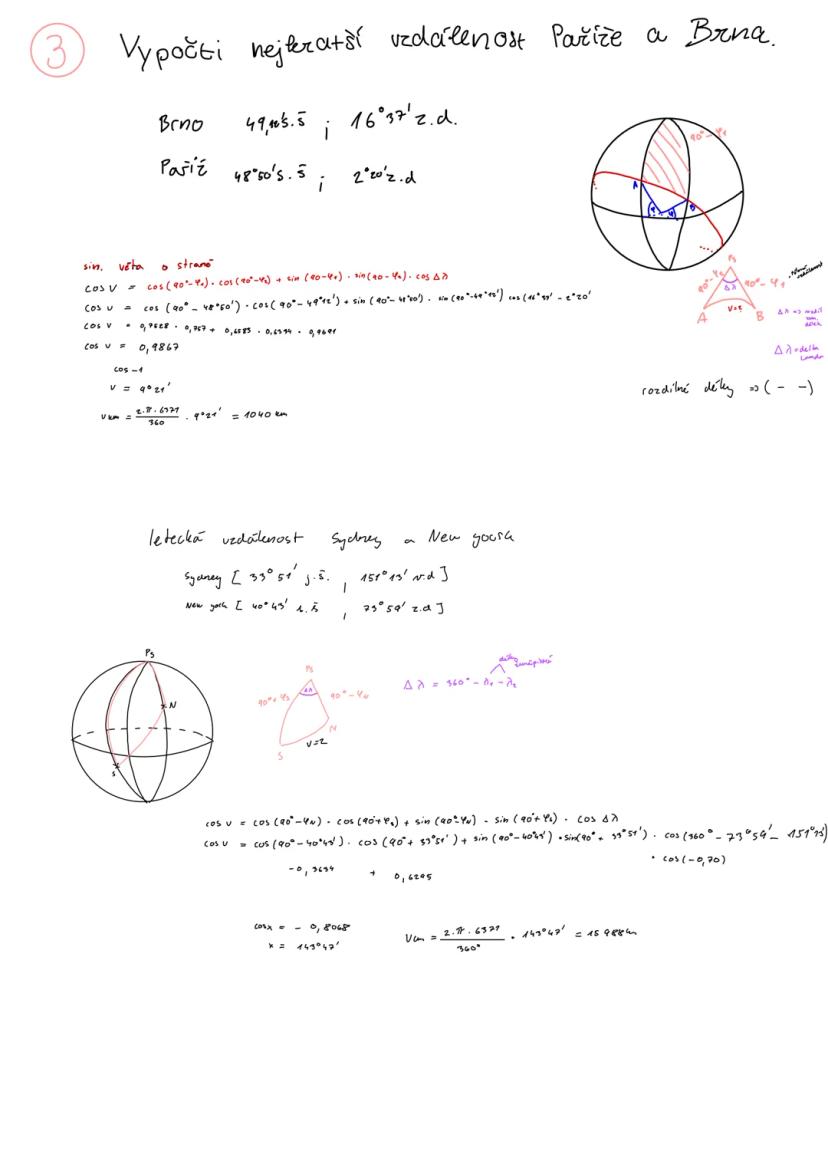 3 Vypočti nejkratší vzdálenost Paříže a Brna.
Brno 49,12's.š ; 16°37' z.d.
Paříž 48°50's.š ; 2°20'z.d
90°-φ₁
A B
φ φ
sin. věta o straně
cos v = cos(90°-φ₁) · cos(90°-φ₂) + sin(90-φ₁) · sin(90-φ₂) · cos Δλ
cos v = cos (90° - 48°50') · cos(90° - 49°12') + sin(90° - 48°50') · sin(90°-49°12') cos(16°37' - 2°20'
cos v = 0,7528 · 0,757 + 0,6583 · 0,6534 · 0,9691
cos v = 0,9867
cos -1
v = 9°21'
v km = 2.π.6371 / 360 · 9°21' = 1040 km
Ps
90°-φ₂ Δλ 90°-φ₁
A v=? B
Δλ =>
Δλ = delta
rozdílné délky => ( - - )
letecká vzdálenost Sydney a New york
Sydney [ 33°51' j.š. , 151°13' v.d ]
New york [ 40°43' s.š , 73°59' z.d ]
Ps
N
S
Ps
90°+φs Δλ 90°-φN
N
S v=?
délky
Δλ = 360° - λ₁ - λ₂
cos v = cos(90°-φN) · cos(90°+φs) + sin(90°-φN) · sin(90°+φs) · cos Δλ
cos v = cos(90°-40°43') · cos(90°+33°51') + sin(90°-40°43') · sin(90°+33°51') · cos(360° - 73°59' - 151°13')
· cos(-0,70)
-0,3634 + 0,6295
cosx = - 0,8068
x = 143°47'
v km = 2.π.6371 / 360° · 143°47' = 15 988km